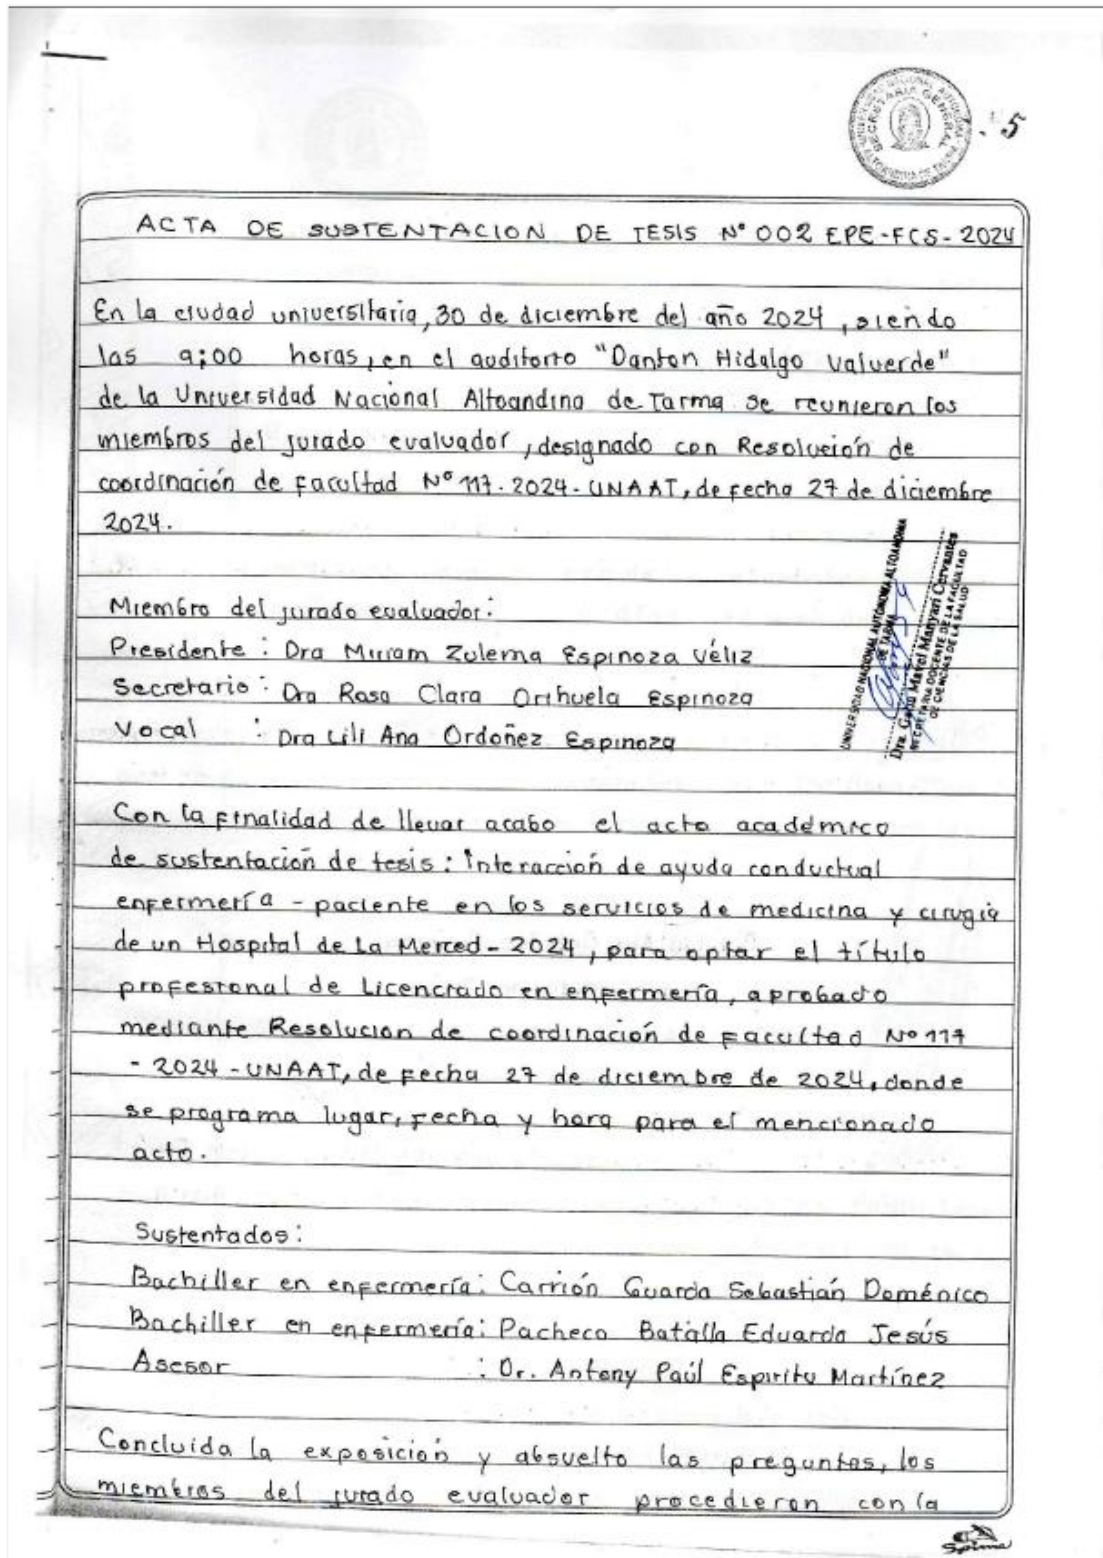 UNIVERSIDAD NACIONAL AUTÓNOMA ALTOANDINA DE TARMA
SECRETARIA GENERAL
5
ACTA DE SUSTENTACION DE TESIS N° 002 EPE-FCS-2024
En la ciudad universitaria, 30 de diciembre del año 2024, siendo
las 9:00 horas, en el auditorio "Danton Hidalgo Valverde"
de la Universidad Nacional Altoandina de Tarma se reunieron los
miembros del jurado evaluador, designado con Resolución de
coordinación de Facultad N° 117-2024-UNAAT, de fecha 27 de diciembre
2024.
UNIVERSIDAD NACIONAL AUTONOMA ALTOANDINA
DE TARMA
Dra. Mavel Manyari Cervantes
SECRETARIA DOCENTE DE LA FACULTAD
DE CIENCIAS DE LA SALUD
Miembro del jurado evaluador:
Presidente : Dra Miriam Zulema Espinoza Véliz
Secretario : Dra Rosa Clara Orihuela Espinoza
Vocal : Dra Lili Ana Ordoñez Espinoza
Con la finalidad de llevar acabo el acto académico
de sustentación de tesis: Interacción de ayuda conductual
enfermería - paciente en los servicios de medicina y cirugia
de un Hospital de La Merced - 2024, para optar el título
profesional de Licenciado en enfermería, aprobado
mediante Resolucion de coordinación de Facultad N° 117
- 2024 - UNAAT, de fecha 27 de diciembre de 2024, donde
se programa lugar, fecha y hora para el mencionado
acto.
Sustentados:
Bachiller en enfermería: Carrión Guarda Sebastián Doménico
Bachiller en enfermería: Pacheco Batalla Eduardo Jesús
Asesor : Dr. Antony Paúl Espiritu Martínez
Concluida la exposición y absuelto las preguntas, los
miembros del jurado evaluador procedieron con la